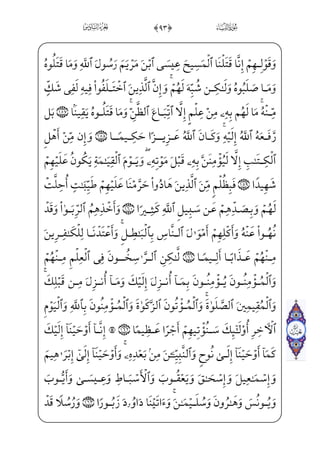 الجزء السادس ﴿٩٣﴾ سورة النساء
وَقَوْلِهِمْ إِنَّا قَتَلْنَا ٱلْمَسِيحَ عِيسَى ٱبْنَ مَرْيَمَ رَسُولَ ٱللَّهِ وَمَا قَتَلُوهُ
وَمَا صَلَبُوهُ وَلَـٰكِن شُبِّهَ لَهُمْ ۚ وَإِنَّ ٱلَّذِينَ ٱخْتَلَفُوا۟ فِيهِ لَفِى شَكٍّ
مِّنْهُ ۚ مَا لَهُم بِهِۦ مِنْ عِلْمٍ إِلَّا ٱتِّبَاعَ ٱلظَّنِّ ۚ وَمَا قَتَلُوهُ يَقِينًۢا ﴿١٥٧﴾ بَل
رَّفَعَهُ ٱللَّهُ إِلَيْهِ ۚ وَكَانَ ٱللَّهُ عَزِيزًا حَكِيمًا ﴿١٥٨﴾ وَإِن مِّنْ أَهْلِ
ٱلْكِتَـٰبِ إِلَّا لَيُؤْمِنَنَّ بِهِۦ قَبْلَ مَوْتِهِۦ ۖ وَيَوْمَ ٱلْقِيَـٰمَةِ يَكُونُ عَلَيْهِمْ
شَهِيدًا ﴿١٥٩﴾ فَبِظُلْمٍ مِّنَ ٱلَّذِينَ هَادُوا۟ حَرَّمْنَا عَلَيْهِمْ طَيِّبَـٰتٍ أُحِلَّتْ
لَهُمْ وَبِصَدِّهِمْ عَن سَبِيلِ ٱللَّهِ كَثِيرًا ﴿١٦٠﴾ وَأَخْذِهِمُ ٱلرِّبَوٰا۟ وَقَدْ
نُهُوا۟ عَنْهُ وَأَكْلِهِمْ أَمْوَٰلَ ٱلنَّاسِ بِٱلْبَـٰطِلِ ۚ وَأَعْتَدْنَا لِلْكَـٰفِرِينَ
مِنْهُمْ عَذَابًا أَلِيمًا ﴿١٦١﴾ لَّـٰكِنِ ٱلرَّٰسِخُونَ فِى ٱلْعِلْمِ مِنْهُمْ
وَٱلْمُؤْمِنُونَ يُؤْمِنُونَ بِمَآ أُنزِلَ إِلَيْكَ وَمَآ أُنزِلَ مِن قَبْلِكَ ۚ
وَٱلْمُقِيمِينَ ٱلصَّلَوٰةَ ۚ وَٱلْمُؤْتُونَ ٱلزَّكَوٰةَ وَٱلْمُؤْمِنُونَ بِٱللَّهِ وَٱلْيَوْمِ
ٱلْـَٔاخِرِ أُو۟لَـٰٓئِكَ سَنُؤْتِيهِمْ أَجْرًا عَظِيمًا ﴿١٦٢﴾ ۞ إِنَّآ أَوْحَيْنَآ إِلَيْكَ
كَمَآ أَوْحَيْنَآ إِلَىٰ نُوحٍ وَٱلنَّبِيِّـۧنَ مِنۢ بَعْدِهِۦ ۚ وَأَوْحَيْنَآ إِلَىٰٓ إِبْرَٰهِيمَ
وَإِسْمَـٰعِيلَ وَإِسْحَـٰقَ وَيَعْقُوبَ وَٱلْأَسْبَاطِ وَعِيسَىٰ وَأَيُّوبَ
وَيُونُسَ وَهَـٰرُونَ وَسُلَيْمَـٰنَ ۚ وَءَاتَيْنَا دَاوُۥدَ زَبُورًا ﴿١٦٣﴾ وَرُسُلًا قَدْ